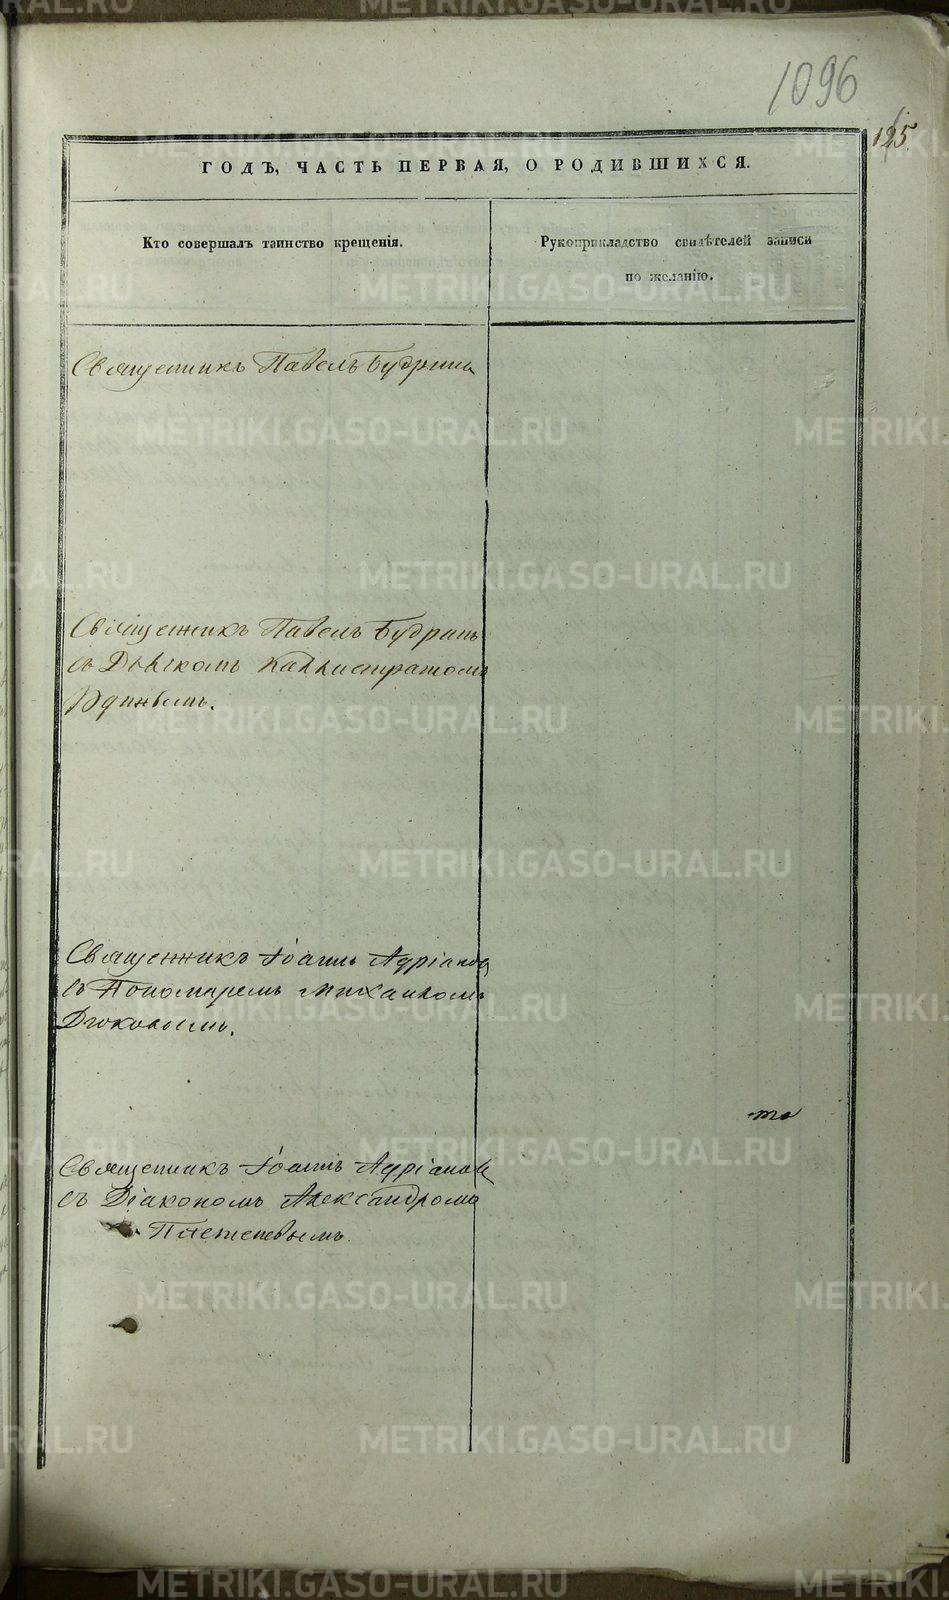 1096
125
ГОДЪ, ЧАСТЬ ПЕРВАЯ, О РОДИВШИХСЯ.
Кто совершалъ таинство крещенія.
Рукоприкладство свидѣтелей записи
по желанію.
Священникъ Павелъ Будринъ
Священникъ Павелъ Будринъ
съ Дьячкомъ Каллистратомъ
Священникъ Іоаннъ Адріановъ
съ Пономаремъ Михаиломъ
Дюковымъ.
Священникъ Іоаннъ Адріановъ
съ Діакономъ Александромъ
METRIKI.GASO-URAL.RU